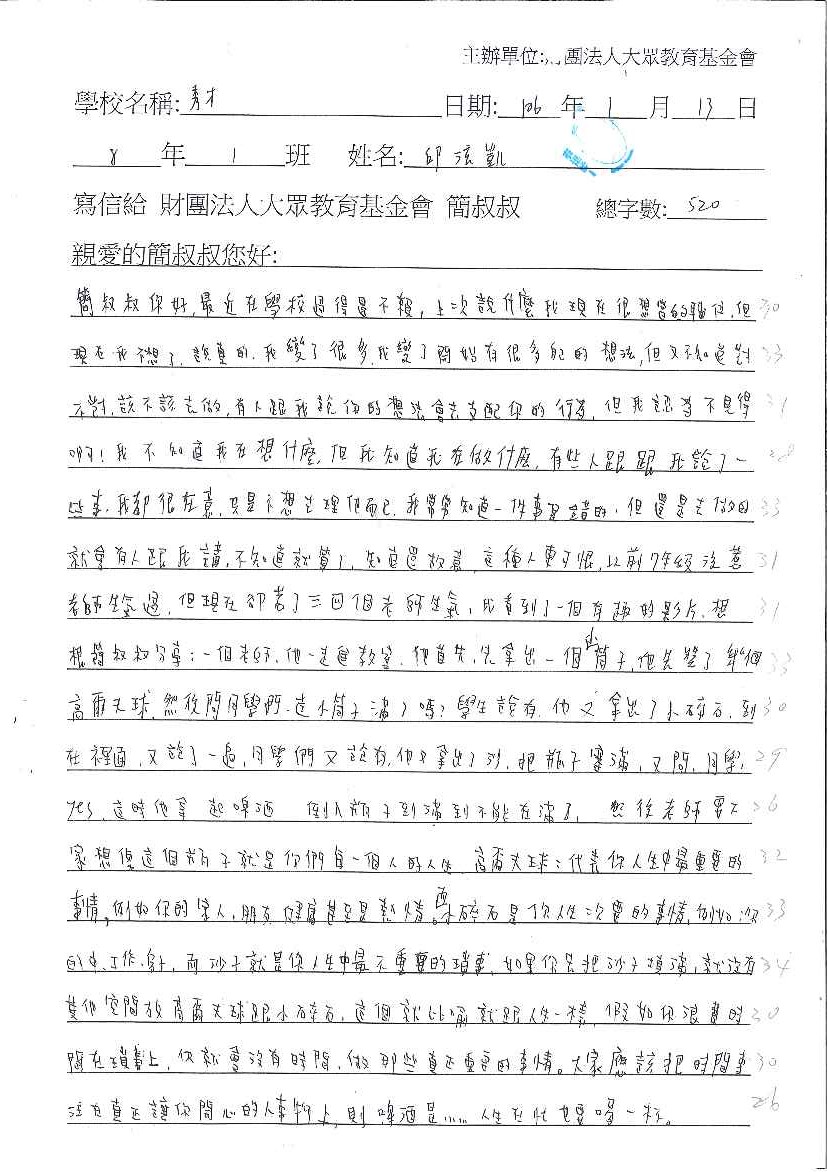 主辦單位: 團法人大眾教育基金會
學校名稱: 秀才 日期: 106 年 1 月 13 日
8 年 1 班 姓名: 邱泫凱
寫信給 財團法人大眾教育基金會 簡叔叔 總字數: 520
親愛的簡叔叔您好:
簡叔叔你好,最近在學校過得是不賴,上次說什麼我現在很想當的職位,但 30
現在我不想了,說真的,我變了很多,我變了開始有很多配的想法,但又不知道對 33
不對,該不該去做,有人跟我說你的想法會去支配你的行為,但我認為不見得 31
啊!我不知道我在想什麼,但我知道我在做什麼,有些人跟跟我說了一 28
些事,我都很在意,只是不想去理他而已,我常常知道一件事是錯的,但還是去做 33
就會有人跟我講,不知道就算了,知道還故意,這種人更可恨,以前7年級沒惹 31
老師生氣過,但現在卻惹了三四個老師生氣,我看到了一個有趣的影片,想 31
跟簡叔叔分享:一個老師,他一走進教室,他首先,先拿出一個小筒子,他先裝了幾個 33
高爾夫球,然後問同學們,這小筒子滿了嗎?學生說有,他又拿出了小碎石,到 30
在裡面,又說了一遍,同學們又說有,他又拿出了沙,把瓶子塞滿,又問,同學, 29
yes,這時他拿起啤酒 倒入瓶子到滿到不能在滿了, 然後老師要大 26
家想像這個瓶子就是你們每一個人的人生,高爾夫球:代表你人生中最重要的 32
事情,例如你的家人,朋友,健康甚至是熱情。而小碎石是你人生次要的事情,例如: 33
的車,工作,房子,而沙子就是你人生中最不重要的瑣事,如果你先把沙子填滿,就沒有 34
其他空間放高爾夫球跟小碎石,這個就比喻就跟人生一樣,假如你浪費時 20
間在瑣事上,你就會沒有時間,做那些真正重要的事情。大家應該把時間專 30
注在真正讓你開心的人事物上,則啤酒是……人生在忙也要喝一杯。 26